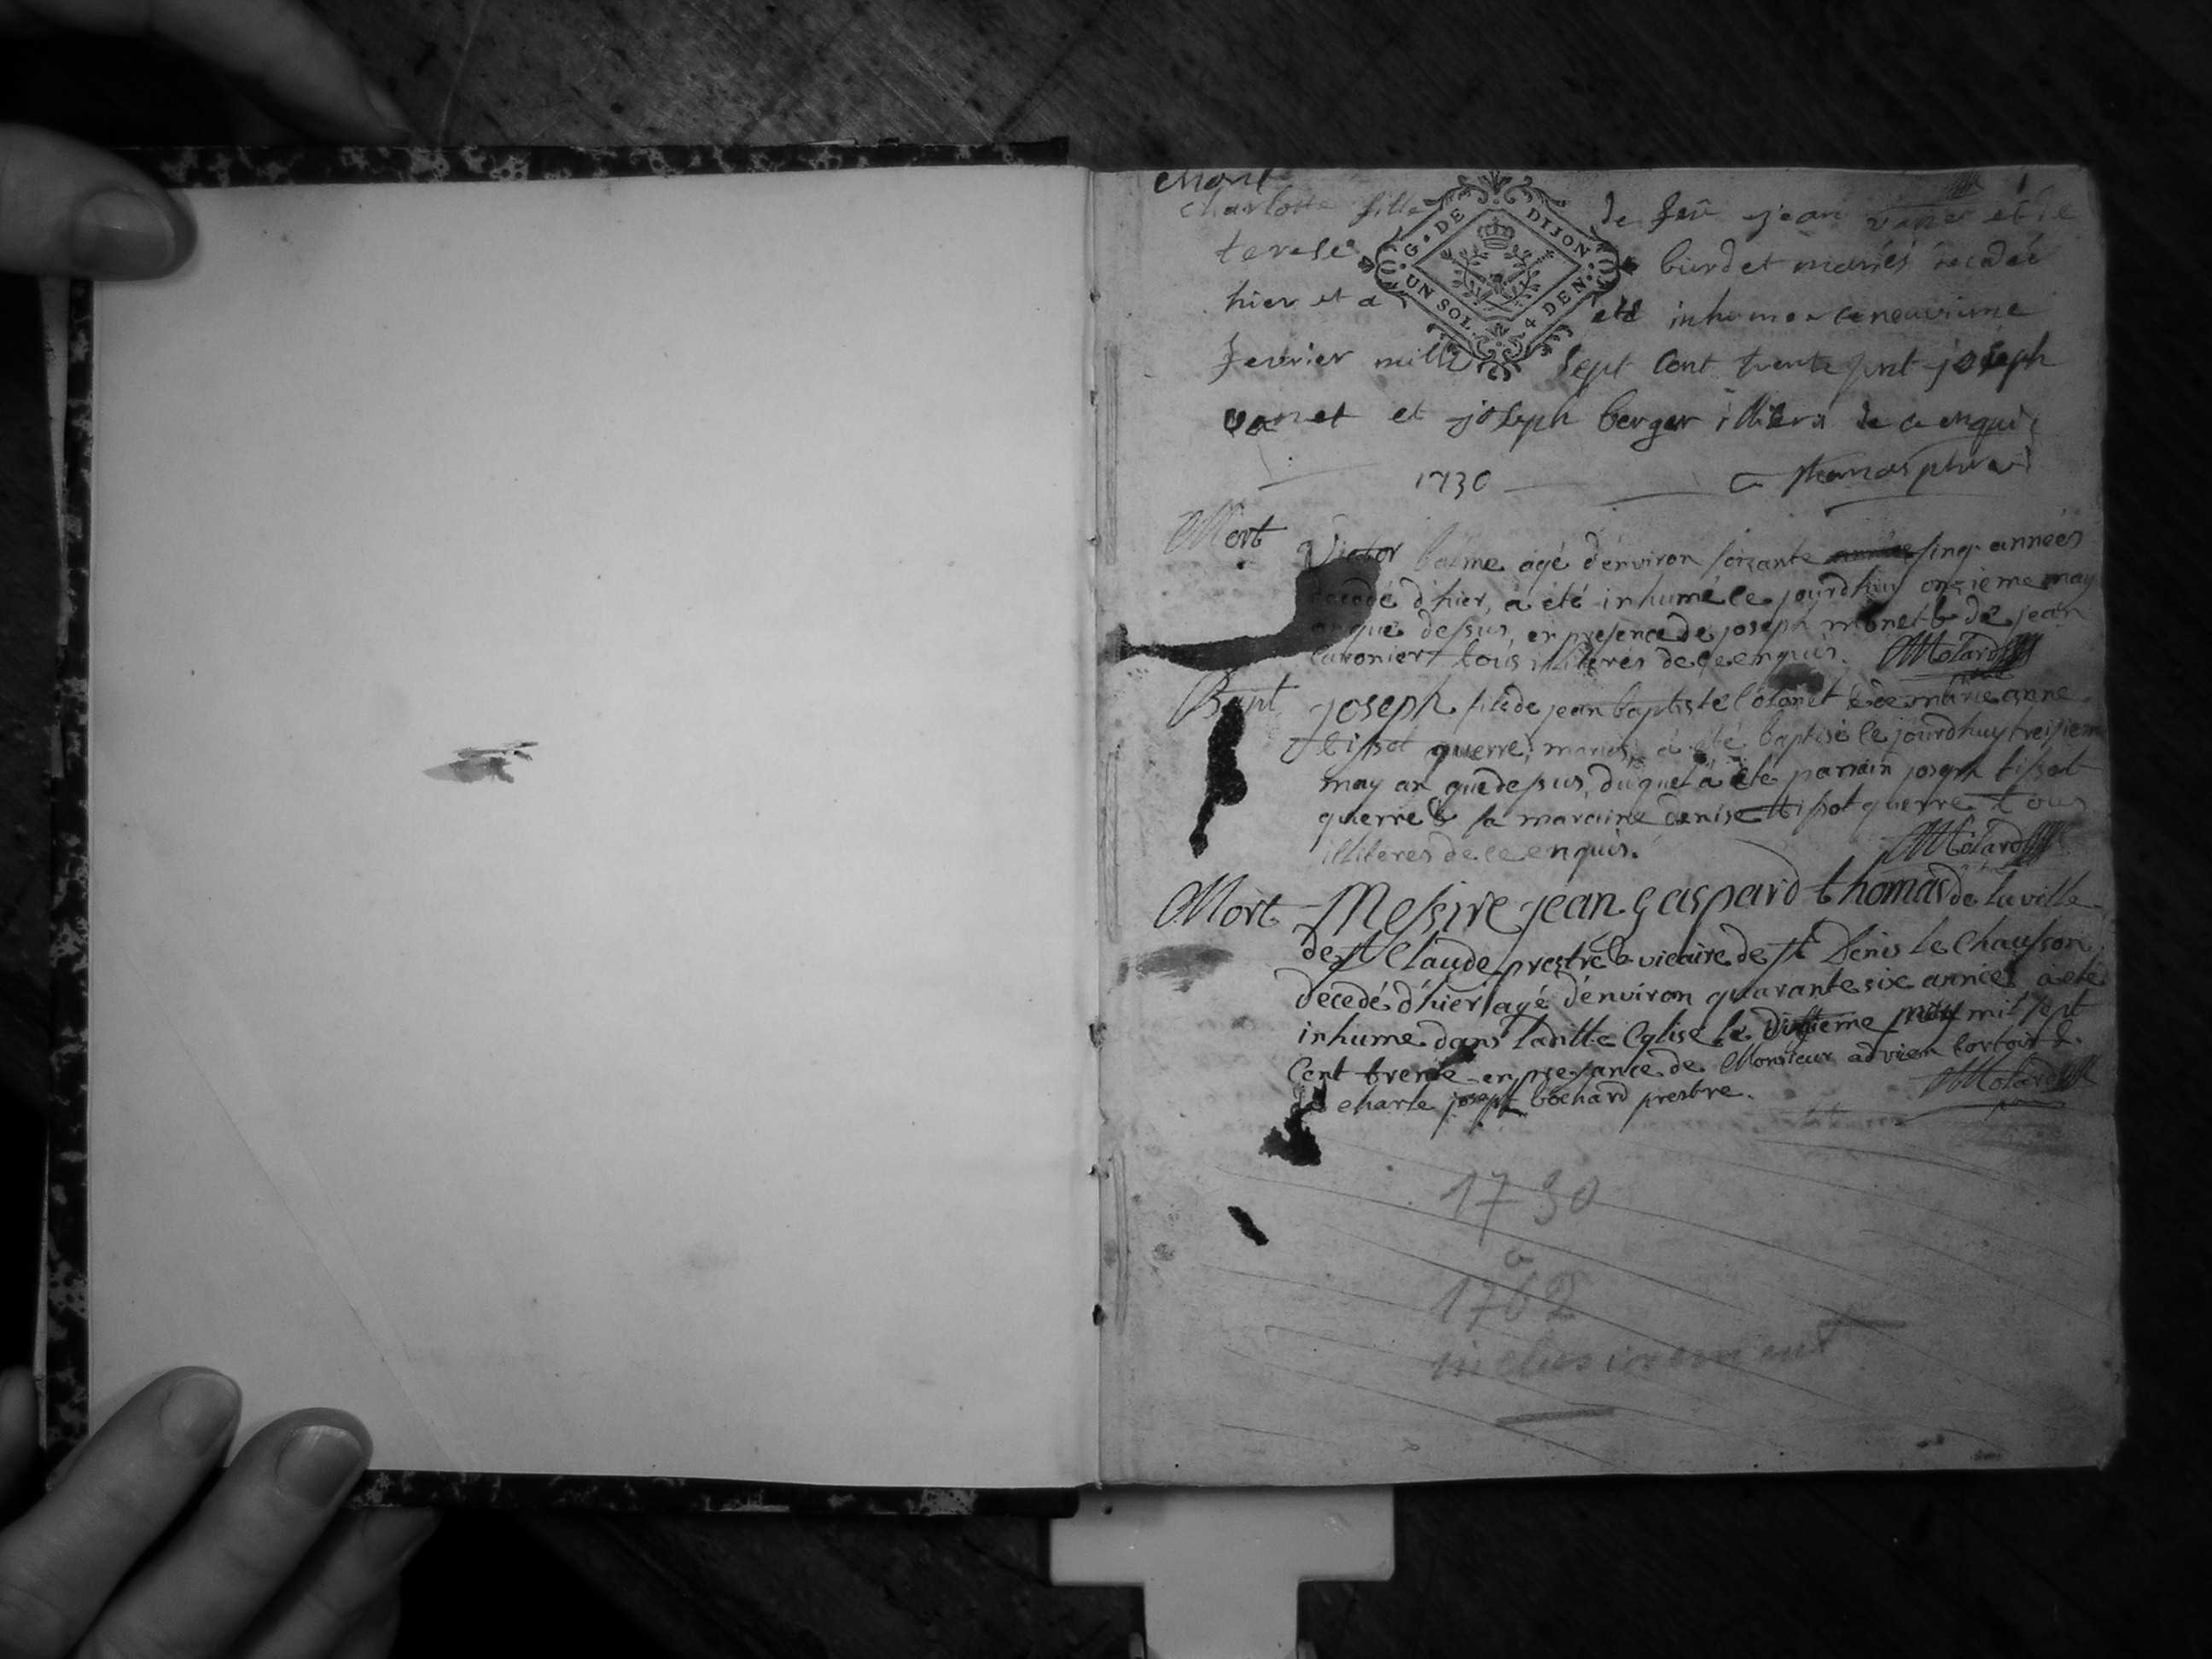 Mort
charlotte fille de feu jean et de
terese burdet mariés decedée
hier et a eté inhumée ce neuvieme
fevrier mille sept cent trente sont joseph
vanet et joseph berger illiters de ce enquis
G. DE DIJON
UN SOL 4 DEN.
1730
Mort
Victor balme agé d'environ soizante sinq années
decedé d'hier, a été inhumé ce jourd'huy onzieme may
an que dessus, en presence de joseph monet & de jean
tous illiterés de ce enquis. Molard
Bapt
joseph fils de jean baptiste & de marie anne
tissot querre, mariés, a été baptisé le jourdhuy treisiem
may an que dessus, duquel a été parrain joseph tissot
querre & sa maraine denise tissot querre tous
illiteres de ce enquis. Molard
Mort
Messire jean gaspard thomas de la ville
de St Claude prestre & vicaire de St Denis le Chausson
decedé d'hier agé d'environ quarante six années a été
inhumé dans laditte Eglise le may mil sept
Cent trente en presance de Monsieur adrien &
de charle joseph bochard prestre. Molard
1730
a
1762
inclusivement